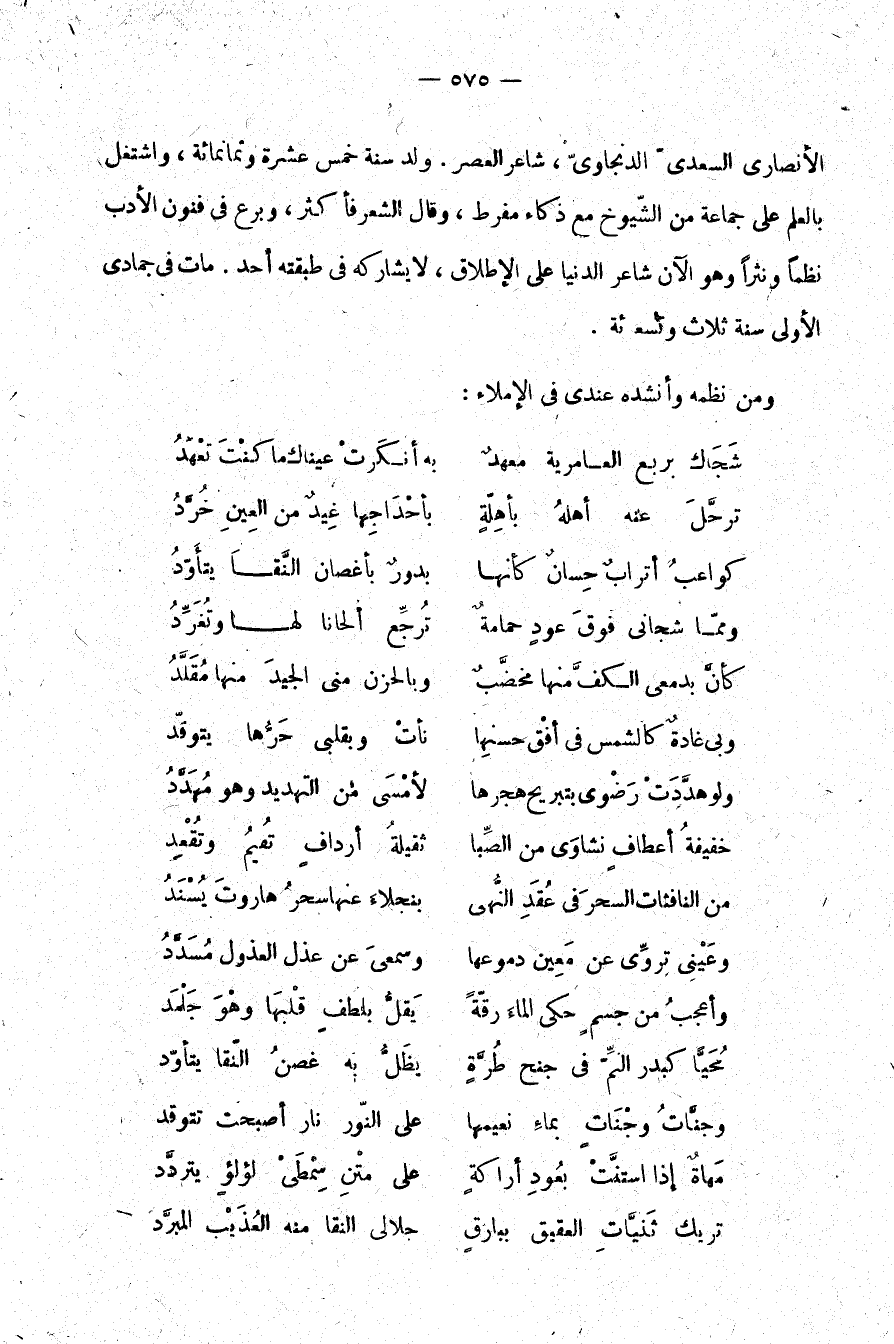 — ٥٧٥ —
الأنصارى السعدى الدنجاوىّ ، شاعر العصر . ولد سنة خمس عشرة وثمانمائة ، واشتغل
بالعلم على جماعة من الشّيوخ مع ذكاء مفرط ، وقال الشعر فأكثر ، وبرع فى فنون الأدب
نظماً ونثراً وهو الآن شاعر الدنيا على الإطلاق ، لا يشاركه فى طبقته أحد . مات فى جمادى
الأولى سنة ثلاث وتسعمائة .
ومن نظمه وأنشده عندى فى الإملاء :
شَجَاك بربع العـامرية معهدٌ به أنـكَرتْ عيناك ما كنْتَ تعْهَدُ
ترحَّلَ عنه أهلهُ بأهِلّةٍ بأحْدَاجِها غِيدٌ من العِينِ خُرَّدُ
كواعبُ أترابٌ حِسانٌ كأنهـا بدورٌ بأغصان النَّقـا يتأَوّدُ
وممّـا شجانى فوقَ عودٍ حمامةٌ تُرجِّع ألحانا لهـا وتُغَرِّدُ
كأنَّ بدمعى الـكفَّ منها مخضَّبٌ وبالحزن منى الجيدَ منها مُقَلَّدُ
وبى غادةٌ كالشمس فى أفْق حسنِها نأتْ وبقلبى حَرُّها يتوقّد
ولو هدَّدَتْ رَضْوى بتبريح هجرها لأمْسَى من التهديد وهو مُهَدَّدُ
خفيفةُ أعطافٍ نشاوَى من الصِّبا ثقيلةُ أردافٍ تُقيمُ وتُقْعِد
من النافثات السحر فى عُقَدِ النُّهى بنجلاءَ عنها سحرُ هاروتَ يُسْنَدُ
وعَيْنِى تروِّى عن مَعِين دموعها وسمعىَ عن عذل العذول مُسَدَّدُ
وأعجبُ من جسمٍ حكى الماءَ رقّةً يَقلُّ بلطفٍ قلْبهَا وهْوَ جَلْمَد
مُحَيًّا كبدر التمِّ فى جنح طُرَّةٍ يظَلُّ به غصنُ النّقا يتأوّد
وجنَّاتُ وجْنَاتٍ بماءِ نعيمها على النّور نار أصبحت تتوقد
مَهاةٌ إذا استنَّتْ بعُودِ أراكةٍ على متْنِ سِمْطَىْ لؤلؤٍ يتردَّد
تريك ثَنيَّاتِ العقيق ببارقٍ جلالى النقا منه العُذَيْب المبرَّد